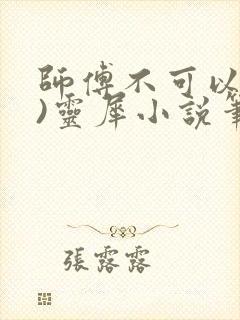 師傅不可以
)靈犀小說
張露露